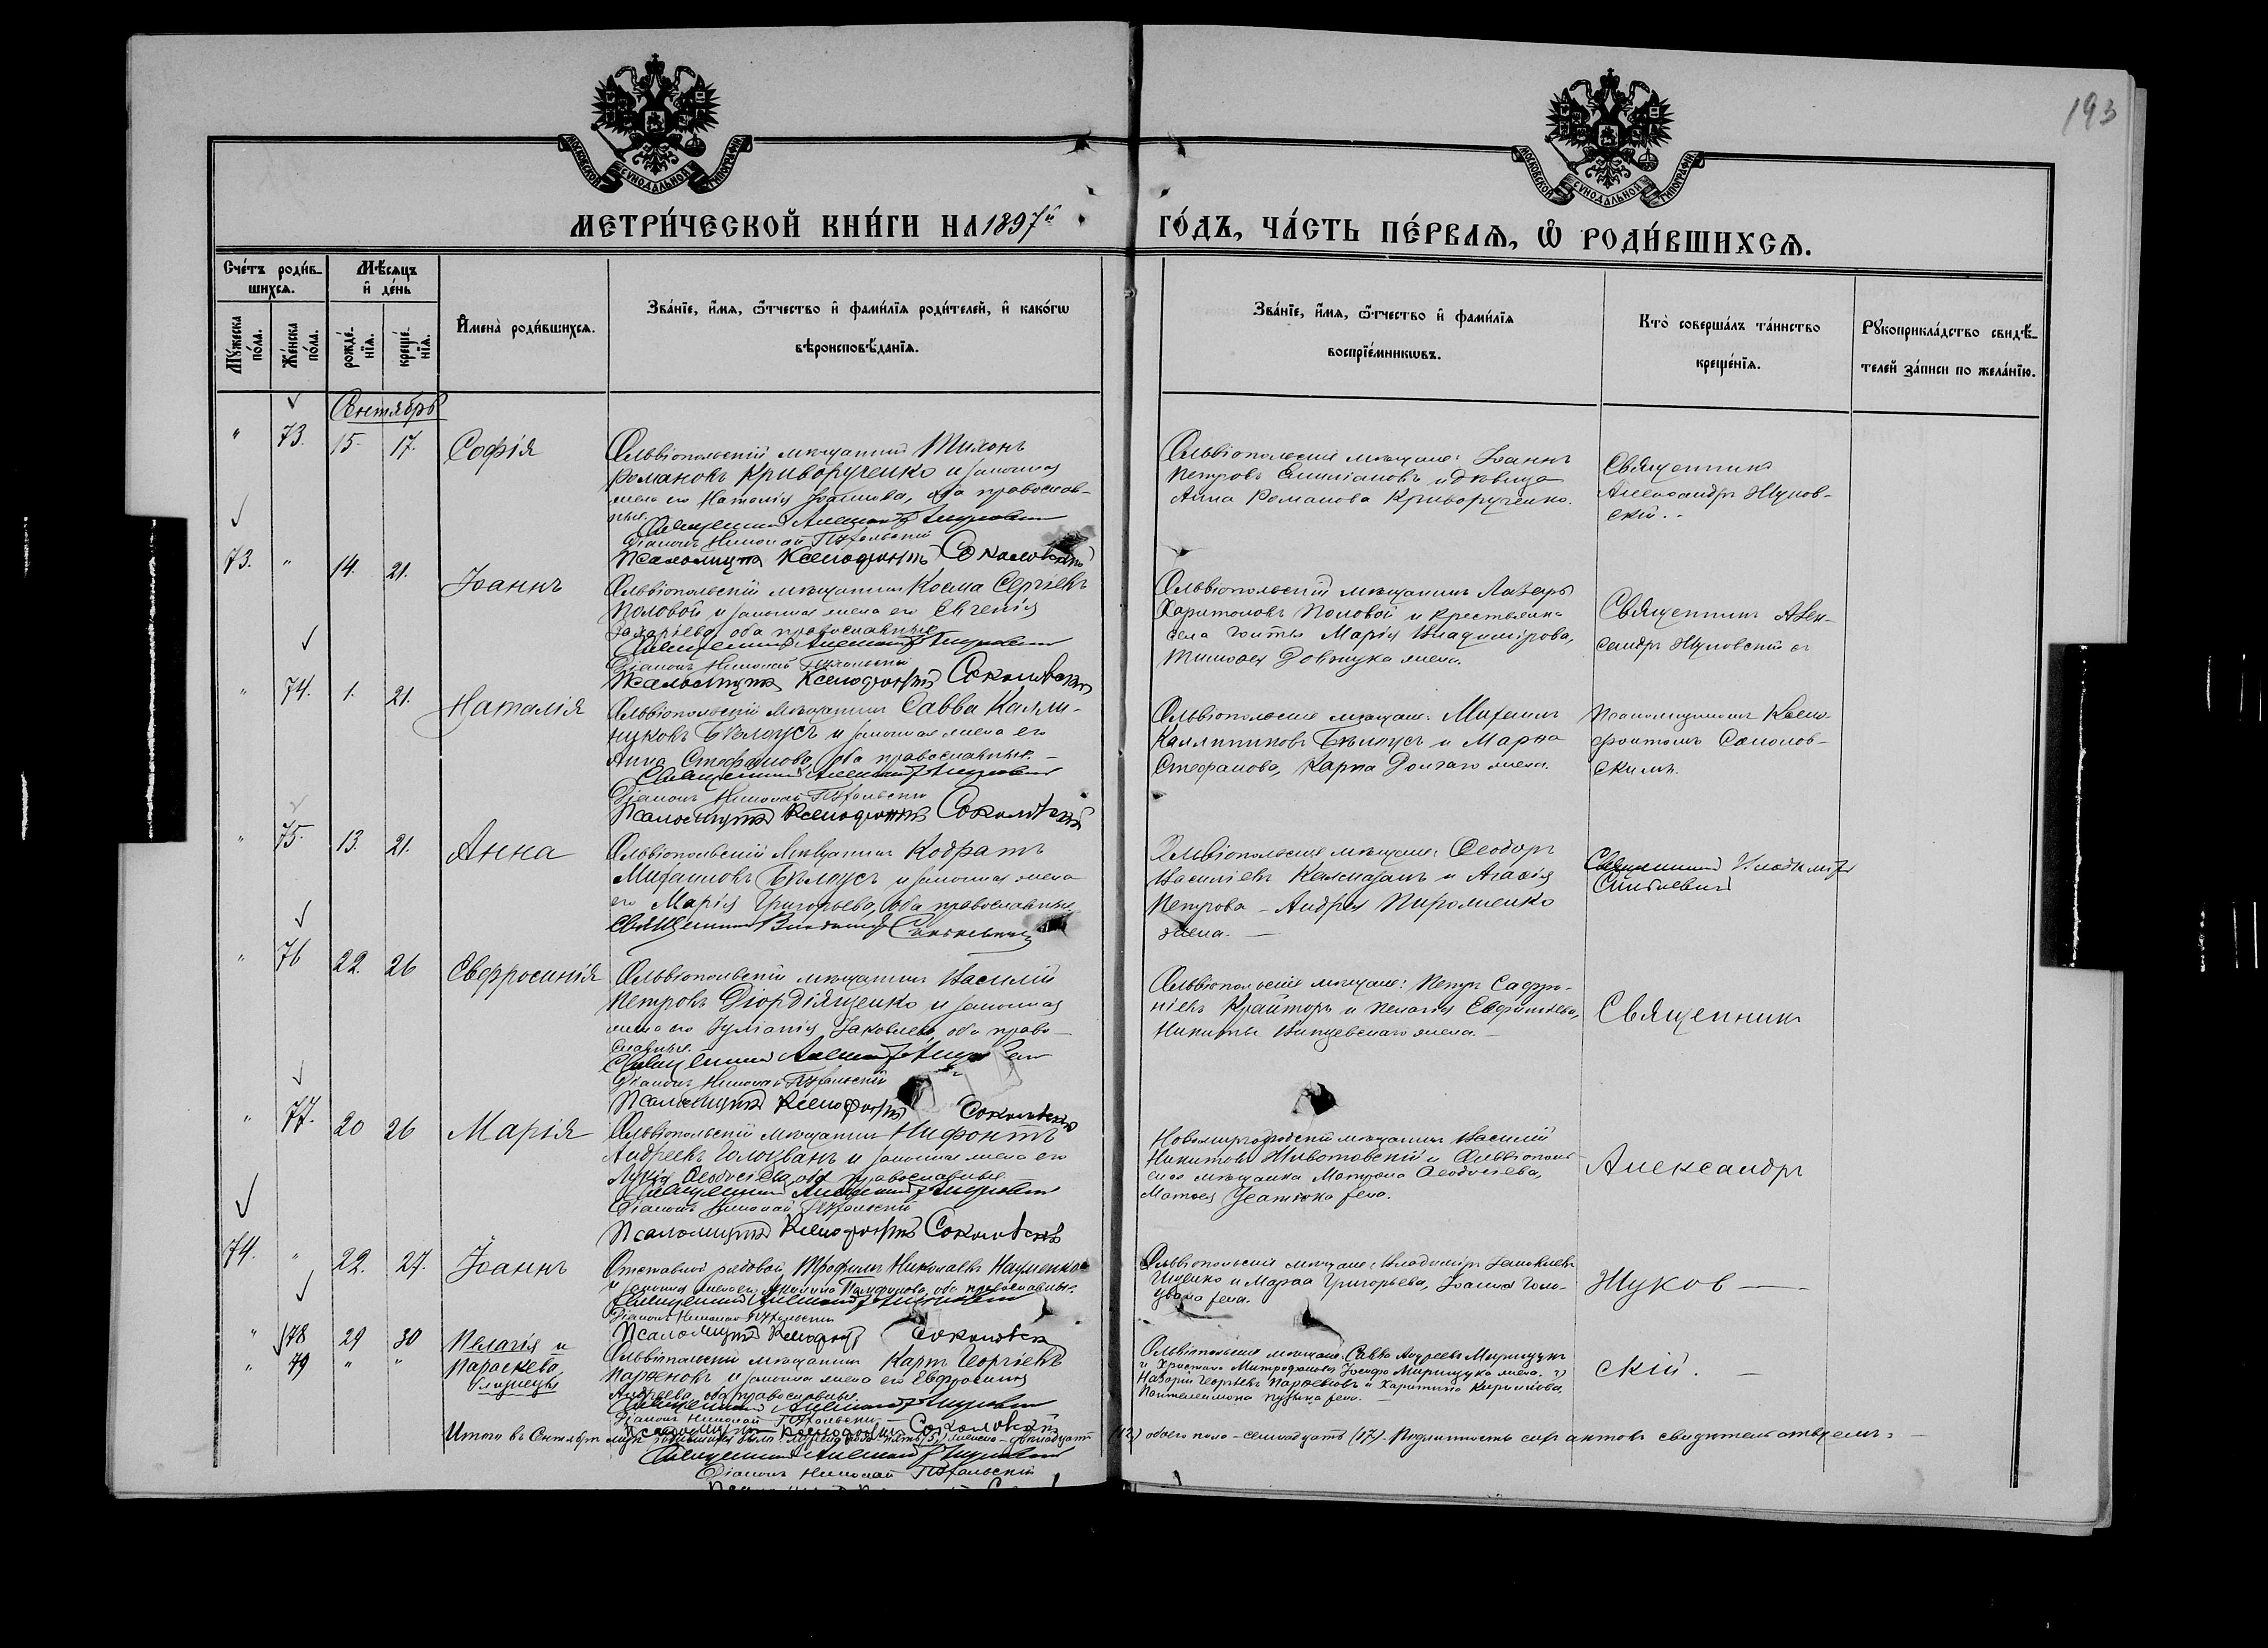 193
МОСКОВСКОЙ СѴНОДАЛЬНОЙ ТИПОГРАФІИ
МОСКОВСКОЙ СѴНОДАЛЬНОЙ ТИПОГРАФІИ
МЕТРИ́ЧЕСКОЙ КНИ́ГИ НА 1897й ГО́ДЪ, ЧА́СТЬ ПЕ́РВАѦ, Ѽ РОДИ́ВШИХСѦ.
Сче́тъ роди́в-
шихсѧ.
Мѣ́сѧцъ
и҆ де́нь
Мꙋ́жеска по́ла.
Же́нска по́ла.
рожде́-
нїѧ.
креще́-
нїѧ.
И҆мена̀ роди́вшихсѧ.
Зва́нїе, и҆́мѧ, ѻ҆́тчество и҆ фами́лїѧ роди́телей, и҆ како́гѡ
вѣроисповѣ́данїѧ.
Зва́нїе, и҆́мѧ, ѻ҆́тчество и҆ фами́лїѧ
воспрїе́мникѡвъ.
Кто̀ соверша́лъ та́инство
креще́нїѧ.
Рꙋкоприкла́дство свидѣ́-
телей за́писи по жела́нїю.
Сентябрь
" 73. 15. 17. Софія
Ольвіопольскій мѣщанинъ Тихонъ
Романовъ Криворученко и законная
жена его Наталія Іоаннова, оба православ-
ные.
Священникъ Александръ Жуковскій
Діаконъ Николай
Псаломщикъ Ксенофонтъ Соколовскій
Ольвіопольскіе мѣщане: Іоаннъ
Петровъ Емиліановъ и дѣвица
Анна Романова Криворученко.
Священникъ
Александръ Жуков-
скій.
73. " 14. 21. Іоаннъ
Ольвіопольскій мѣщанинъ Косма Сергіевъ
Половой и законная жена его Евгенія
Захаріева, оба православные
Священникъ Александръ Жуковскій
Діаконъ Николай
Псаломщикъ Ксенофонтъ Соколовскій
Ольвіопольскій мѣщанинъ Лазарь
Харитоновъ Половой и крестьянка
села Марія Владимірова,
Тимофея Довжука жена.
Священникъ Алек-
сандръ Жуковскій съ
" 74. 1. 21. Наталія
Ольвіопольскій мѣщанинъ Савва Калли-
никовъ Бѣлоусъ и законная жена его
Анна Стефанова, оба православные.
Священникъ Александръ Жуковскій
Діаконъ Николай
Псаломщикъ Ксенофонтъ Соколовскій
Ольвіопольскіе мѣщане: Михаилъ
Каллиниковъ Бѣлоусъ и Марѳа
Стефанова, Карпа Долгаго жена.
Псаломщикомъ Ксено-
фонтомъ Соколов-
скимъ.
" 75. 13. 21. Анна
Ольвіопольскій мѣщанинъ Кодратъ
Михаиловъ Бѣлоусъ и законная жена
его Марія Григорьева, оба православные
Священникъ Владиміръ
Ольвіопольскіе мѣщане: Ѳеодоръ
Василіевъ Калмазанъ и Агаѳія
Петрова – Андрея Пироженко
жена.
Священникъ Владиміръ
" 76 22. 26 Евфросинія
Ольвіопольскій мѣщанинъ Василій
Петровъ Діордіященко и законная
жена его Іуліанія Іаковлева, оба право-
славные.
Священникъ Александръ Жуковскій
Діаконъ Николай
Псаломщикъ Ксенофонтъ Соколовскій
Ольвіопольскіе мѣщане: Петръ Сафро-
ніевъ Крайторъ и Пелагія Евфиміева,
Никиты жена.
Священникъ
" 77. 20 26 Марія
Ольвіопольскій мѣщанинъ Нифонтъ
Андреевъ Голованъ и законная жена его
Лукія Ѳеодосіева, оба православные
Священникъ Александръ Жуковскій
Діаконъ Николай
Псаломщикъ Ксенофонтъ Соколовскій
Новомиргородскій мѣщанинъ Василій
Никитовъ Животовскій и Ольвіополь-
ская мѣщанка Матрона Ѳеодосіева,
жена.
Александръ
74. " 22. 27. Іоаннъ
Отставной рядовой Трофимъ Николаевъ Науменко
и законная жена его Памфилова, оба православные.
Священникъ Александръ Жуковскій
Діаконъ Николай
Псаломщикъ Ксенофонтъ Соколовск
Ольвіопольскіе мѣщане: Владиміръ
и Марѳа Григорьева, Іоанна Голо-
вана жена.
Жуков —
" 78 29 30 Пелагія и
" 79 " " Параскева
близнецы
Ольвіопольскій мѣщанинъ Карпъ Георгіевъ
Парѳеновъ и законная жена его Евфросинія
Андреева, оба православные.
Священникъ Александръ Жуковскій
Діаконъ Николай
Псаломщикъ Ксенофонтъ Соколовскій
Ольвіопольскіе мѣщане: Савва Андреевъ Мирищукъ
и Христина Митрофанова, Іосифа Мирищука жена. 2)
Назарій Георгіевъ Парѳеновъ и Харитина Кириллова,
Пантелеимона жена.
скій. —
Итого въ Сентябрѣ мѣсяцѣ родившихся было: мужеска пола – пять (5), женска – двѣнадцать (12) обоего пола – семнадцать (17). Подлинность сихъ актовъ свидѣтельствуемъ:
Священникъ Александръ Жуковскій
Діаконъ Николай